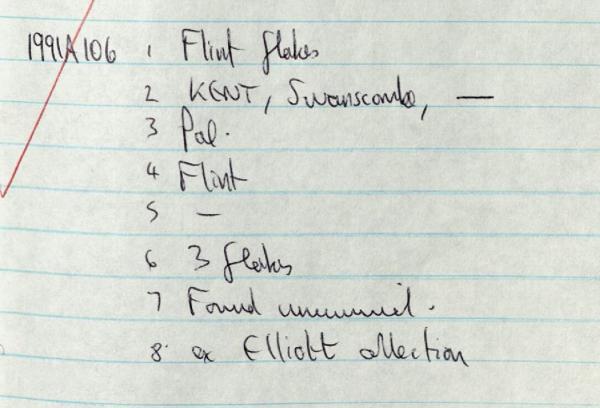 1991A106 1 Flint flakes
2 KENT, Swanscombe, —
3 Pal.
4 Flint
5 —
6 3 flakes
7 Found unnumbered.
8. ex Elliott collection